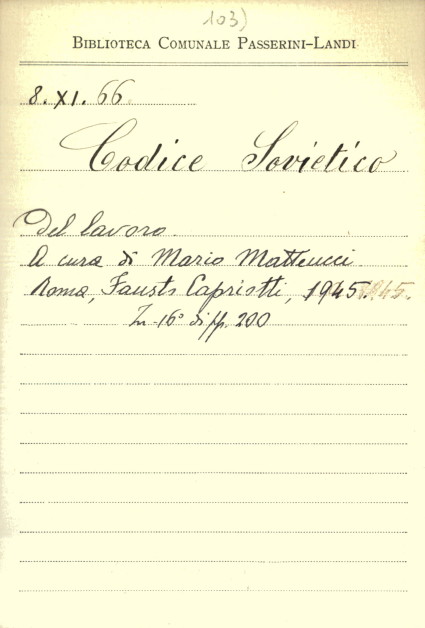 103)
BIBLIOTECA COMUNALE PASSERINI-LANDI
8. XI. 66
Codice Sovietico
Del lavoro.
A cura di Mario Matteucci.
Roma, Fausto Capriotti, 1945. 1945.
In 16° di pp. 200